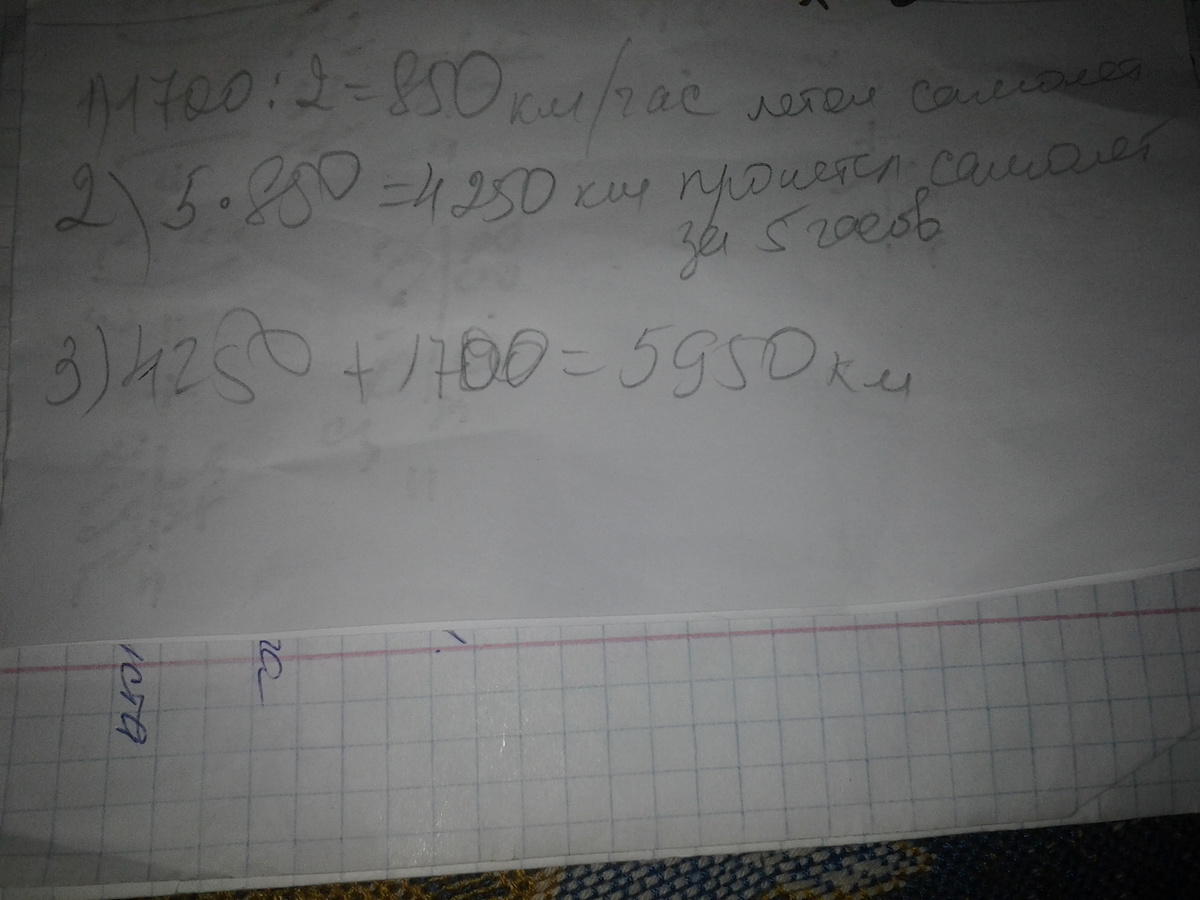 1) 1700 : 2 = 850 км/час летел самолет
2) 5 · 850 = 4250 км пролетел самолет
за 5 часов
3) 4250 + 1700 = 5950 км